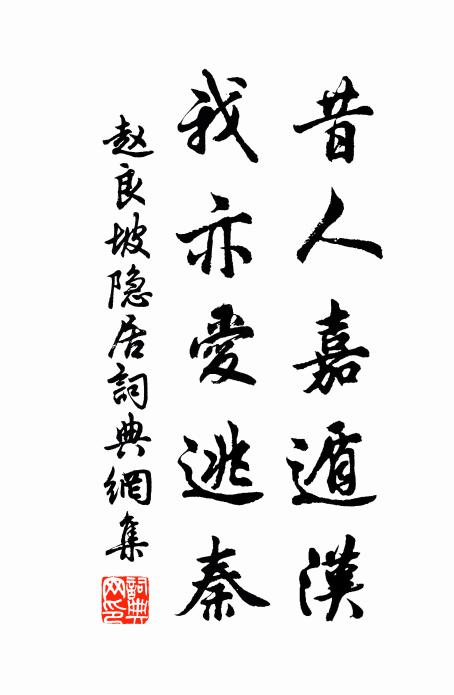 昔人嘉遁漢
我亦愛逃秦
赵良坡隐居詞典網集
詞典